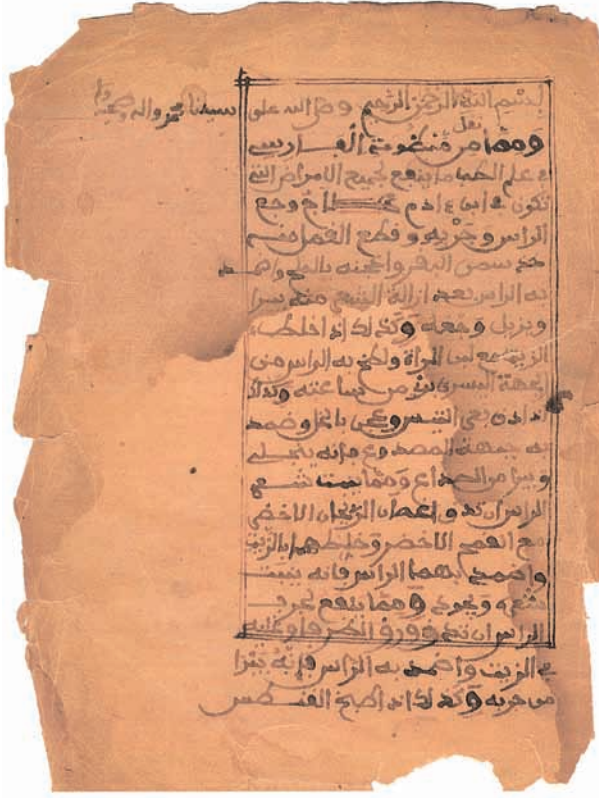 بسم الله الرحمن الرحيم وصلى الله على سيدنا محمر واله وصحبه
نقل
ومما من الفارسي
في علم الطب ما ينفع لجميع الامراض التي
تكون في ابن ءادم وجع
الراس وحربه وقطع القمل منه
خذ سمن البقر واعجنه بالملح واضمد
به الراس بعد ازالة الشعر منه يبرا
ويزيل وجعه وكذلك اذا خلطت
الزيت مع لبن المراة ولطخ به الراس من
الجهة اليسرى برئ من ساعته وكذلك
اذا دق وعجن بالخل وضمد
به جبهة المصدوع فانه ينجلي
ويبرا من الصداع ومما ينبت شعر
الراس ان تدق اغصان الريحان الاخضر
مع الاخضر وخلطهما بالزيت
واضمد بهما الراس فانه ينبت
شعره ويجود ومما ينفع لحرب
الراس ان تدق ورق
في الزيت واضمد به الراس فإنه يبرا
من حربه وكذلك اذا طبخ